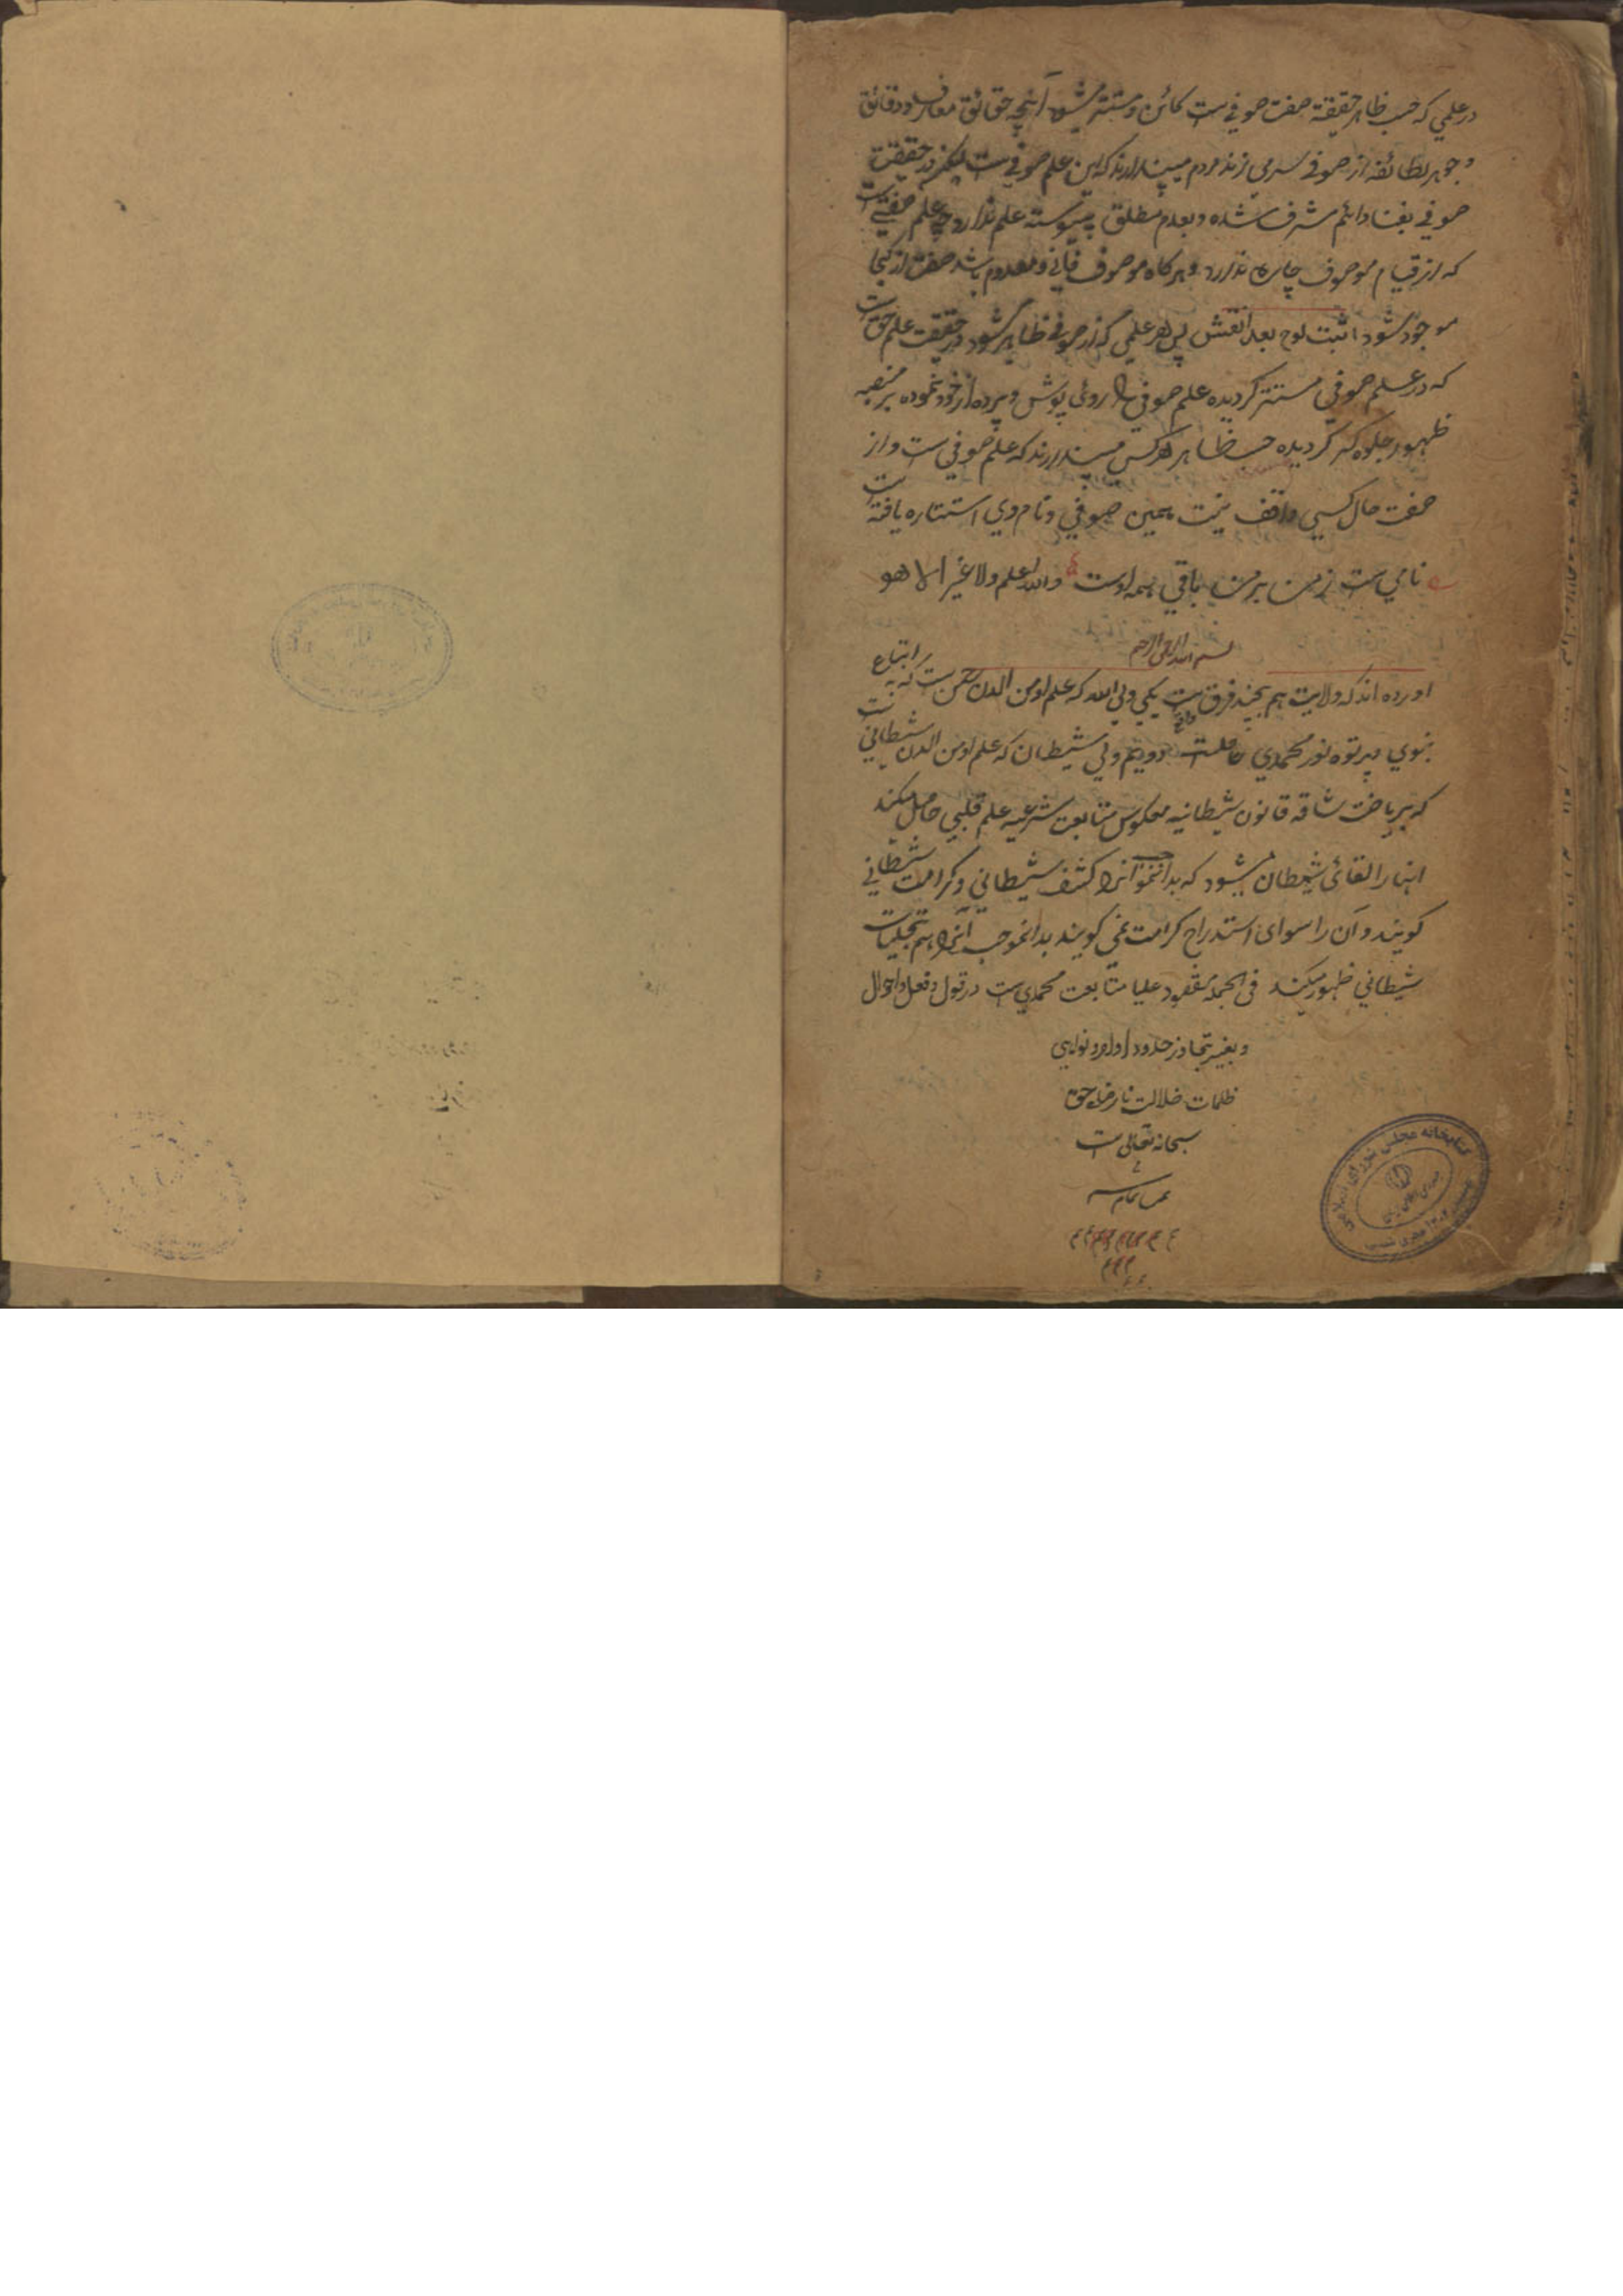 در علمی که حسب ظاهر حقیقة صفت صوفی ست کائن و مستتر میشود آنچه حقائق معارف و دقائق
و جوهر لطائفه از صوفی سر می زند مردم میپندارند که این علم صوفی ست لیکن در حقیقت
صوفی بفناء دائم مشرف شده و بعدم مطلق پیوسته علم ندارد چه علم صفتی ست
که از قیام موصوف چاره ندارد و هرگاه موصوف فانی و معدوم باشد صفت از کجا
موجود شود اثبت لوح بعد انقش پس هر علمی که از صوفی ظاهر شود در حقیقت علم حق ست
که در علم صوفی مستتر گردیده علم صوفی را روئی پوش و پرده از خود نموده بر منصه
ظهور جلوه گر گردیده حسب ظاهر هر کس میپندارند که علم صوفی ست و از
صفت حال کسی واقف نیست همین صوفی و نام وی استتاره یافته ست
نامی ست ز من بر من باقی همه اوست والله اعلم ولا غیر الا هو
بسم الله الرحمن الرحیم
اورده اند که ولایت هم بچند فرق ست یکی ولی الله که علم او من الدن رحمن ست که به اتباع
نبوی و پرتوه نور محمدی حاصلست دویم ولی شیطان که علم او من الدن شیطانی ست
که بریاضت شاقه قانون شیطانیه معکوس متابعت شرعیه علم قلبی حاصل میکند
انها را القائی شیطان میشود که بدانموجب آنرا کشف شیطانی و کرامت شیطانی
گویند و آن را سوای استدراج کرامت نمی گویند بدانموجب آنرا هم تجلیات
شیطانی ظهور میکند فی الجمله مقصود علیا متابعت محمدی ست در قول و فعل و احوال
و بغیر تجاوز حدود اوامر و نواهی
ظلمات ضلالت نارضاء حق
سبحانه تعالی ست
تمام
کتابخانه مجلس شورای اسلامی